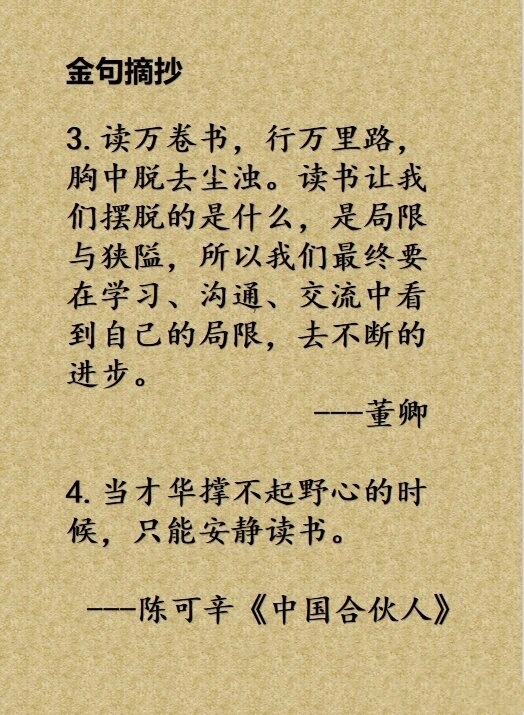 金句摘抄
3. 读万卷书，行万里路，
胸中脱去尘浊。读书让我
们摆脱的是什么，是局限
与狭隘，所以我们最终要
在学习、沟通、交流中看
到自己的局限，去不断的
进步。
---董卿
4. 当才华撑不起野心的时
候，只能安静读书。
---陈可辛《中国合伙人》